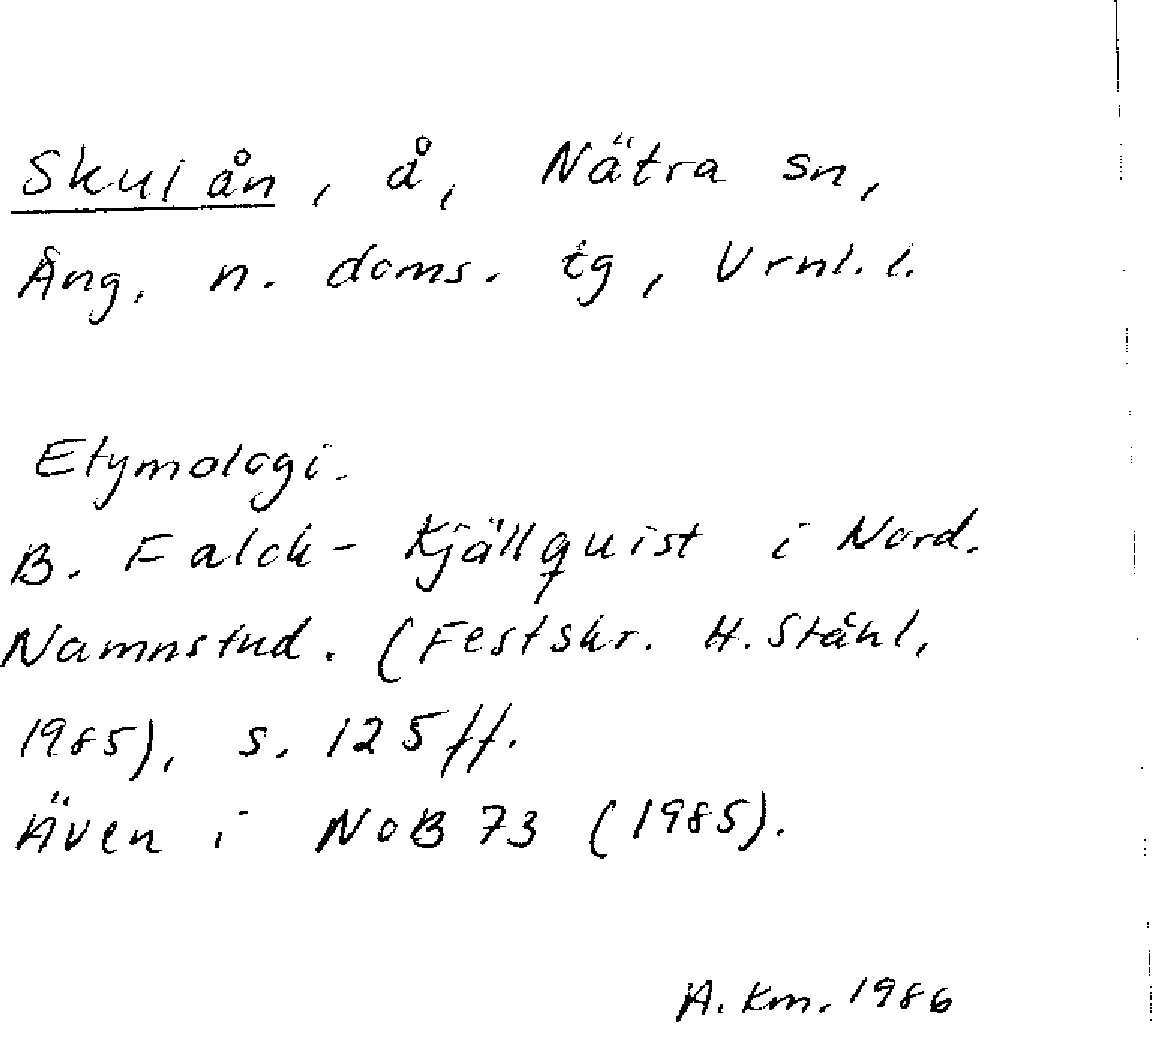 Skulån, å, Nätra sn,
Ång. n. doms. tg, Vrnl. l.
Etymologi.
B. Falck-Kjällquist i Nord.
Namnstud. (Festskr. H. Ståhl,
1985), s. 125 ff.
Även i NoB 73 (1985).
A. Km. 1986